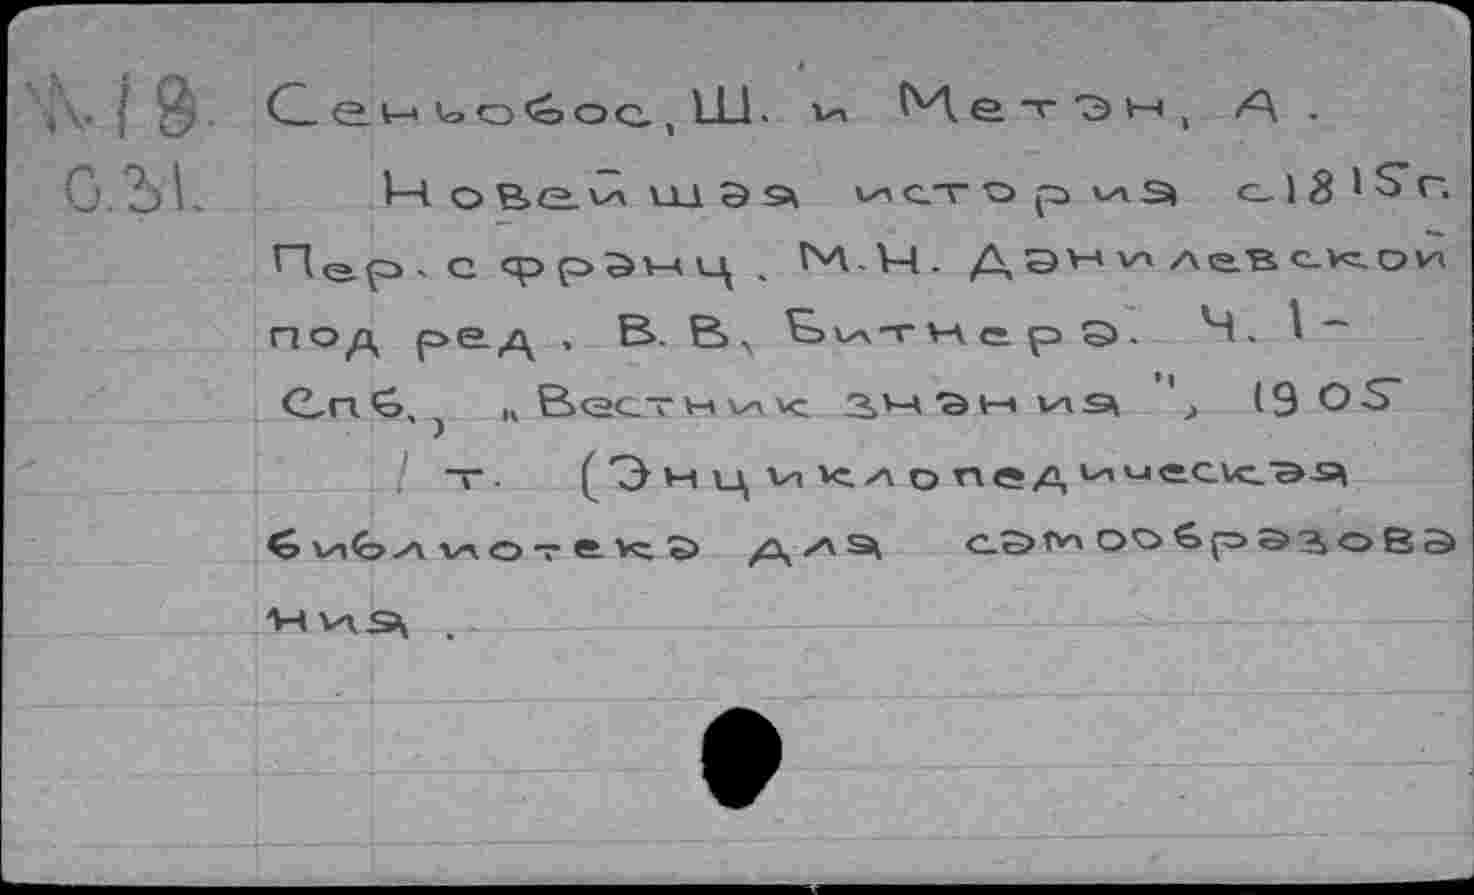 Сеньобос, Ш. и Метэн, А.
Новейшая история с 1815 г.
Пер. с франц. М.Н. Данилевской
под ред. В. В. Битнера. Ч. 1-
Спб., „Вестник знания", 1905
1 т. (Энциклопедическая
библиотека для самообразова
ния.